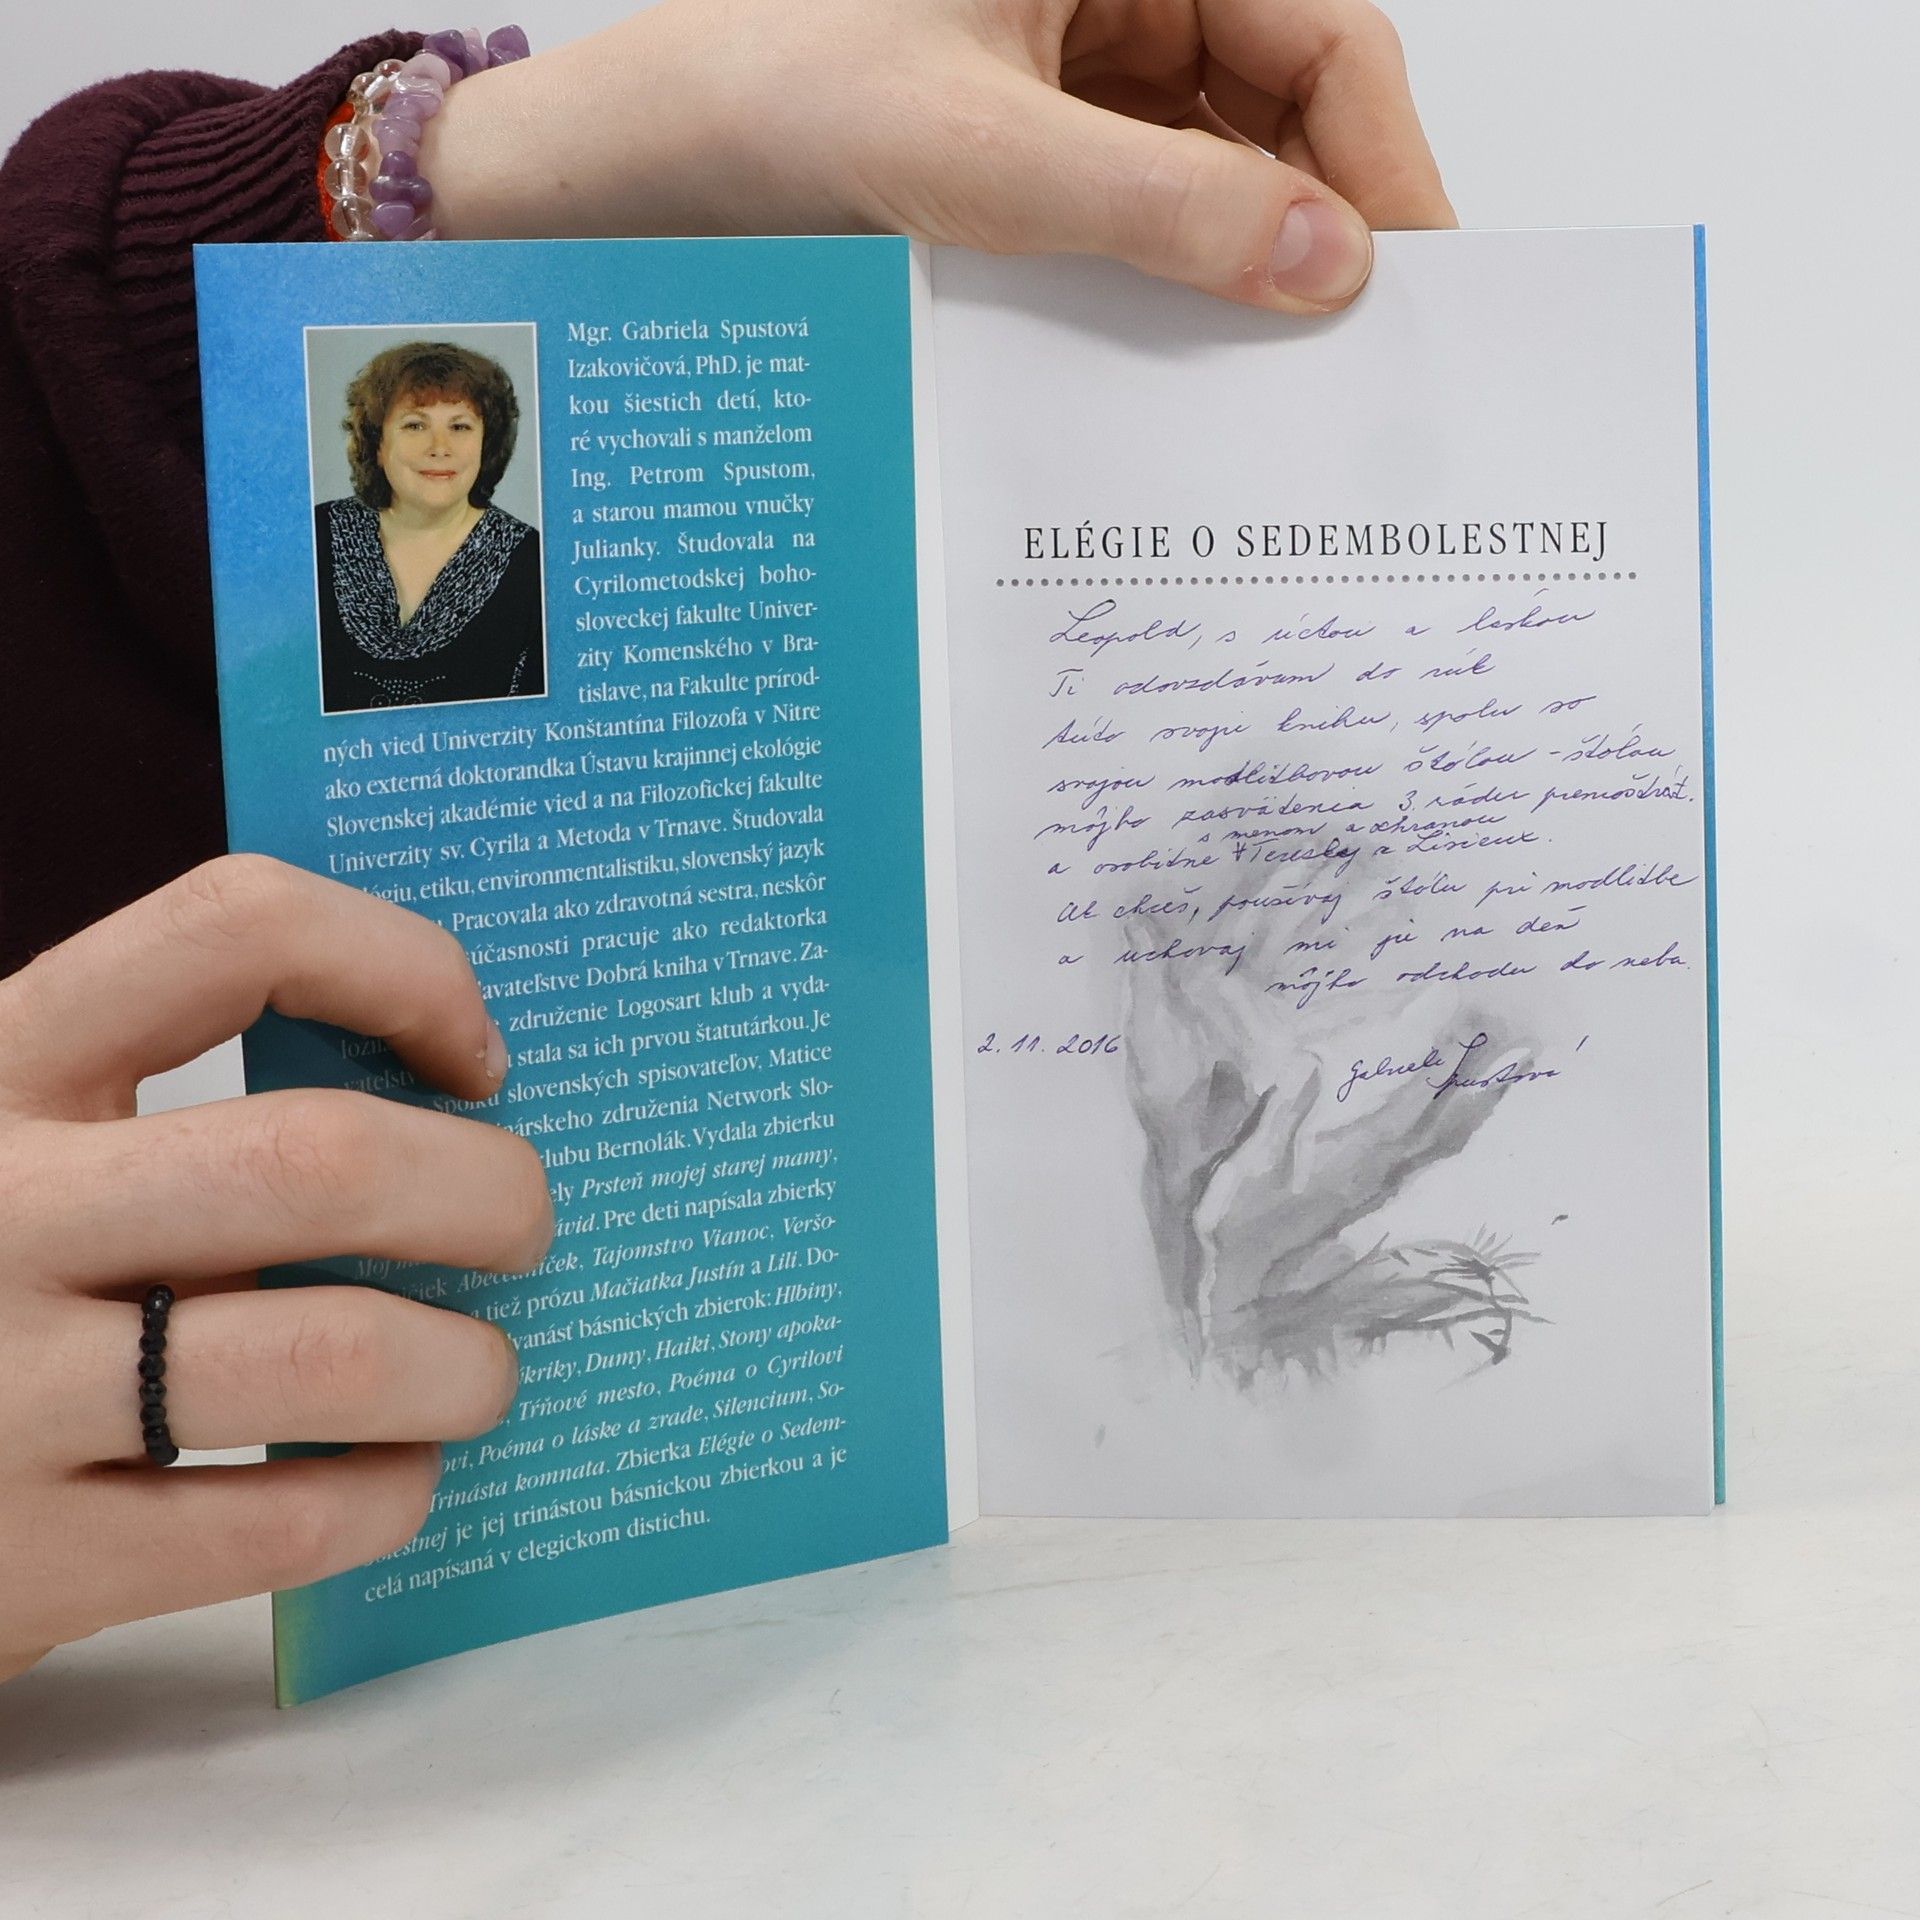 Mgr. Gabriela Spustová
Izakovičová, PhD. je mat-
kou šiestich detí, kto-
ré vychovali s manželom
Ing. Petrom Spustom,
a starou mamou vnučky
Julianky. Študovala na
Cyrilometodskej boho-
sloveckej fakulte Univer-
zity Komenského v Bra-
tislave, na Fakulte prírod-
ných vied Univerzity Konštantína Filozofa v Nitre
ako externá doktorandka Ústavu krajinnej ekológie
Slovenskej akadémie vied a na Filozofickej fakulte
Univerzity sv. Cyrila a Metoda v Trnave. Študovala
etiku, environmentalistiku, slovenský jazyk
Pracovala ako zdravotná sestra, neskôr
súčasnosti pracuje ako redaktorka
Dobrá kniha v Trnave. Za-
združenie Logosart klub a vyda-
stala sa ich prvou štatutárkou. Je
Spolku slovenských spisovateľov, Matice
združenia Network Slo-
Bernolák. Vydala zbierku
Prsteň mojej starej mamy,
Pre deti napísala zbierky
Tajomstvo Vianoc, Veršo-
tiež prózu Mačiatka Justín a Lili. Do-
básnických zbierok: Hlbiny,
Dumy, Haiki, Stony apoka-
Tŕňové mesto, Poéma o Cyrilovi
Poéma o láske a zrade, Silencium, So-
Trinásta komnata. Zbierka Elégie o Sedem-
bolestnej je jej trinástou básnickou zbierkou a je
celá napísaná v elegickom distichu.
ELÉGIE O SEDEMBOLESTNEJ
Leopold, s úctou a láskou
Ti odovzdávam do rúk
túto svoju knihu, spolu so
svojou modlitbovou štólou - štólou
môjho zasvätenia 3. rádu premoštrát.
s menom a ochranou
a osobitne Terezky z Lisieux.
Ak chceš, používaj štólu pri modlitbe
a uchovaj mi ju na deň
môjho odchodu do neba.
2. 11. 2016
Gabriela Spustová